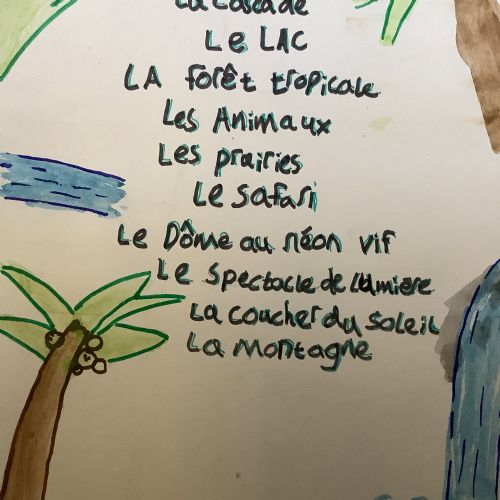 La cascade
Le LAC
LA forêt tropicale
Les Animaux
Les prairies
Le safari
Le Dôme au néon vif
Le spectacle de lumière
La coucher du soleil
La Montagne